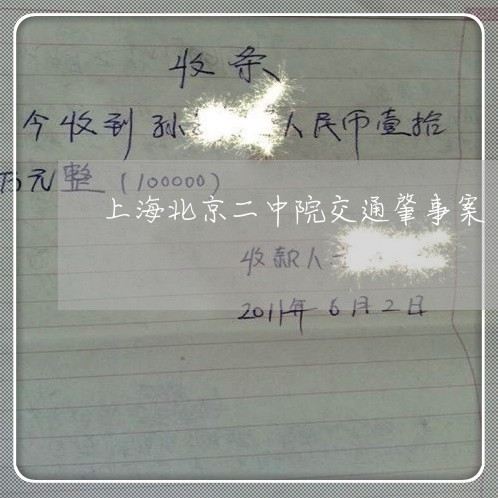 收条
今收到孙 人民币壹拾
万元整(100000)
上海北京二中院交通肇事案
收款人
2011年6月2日